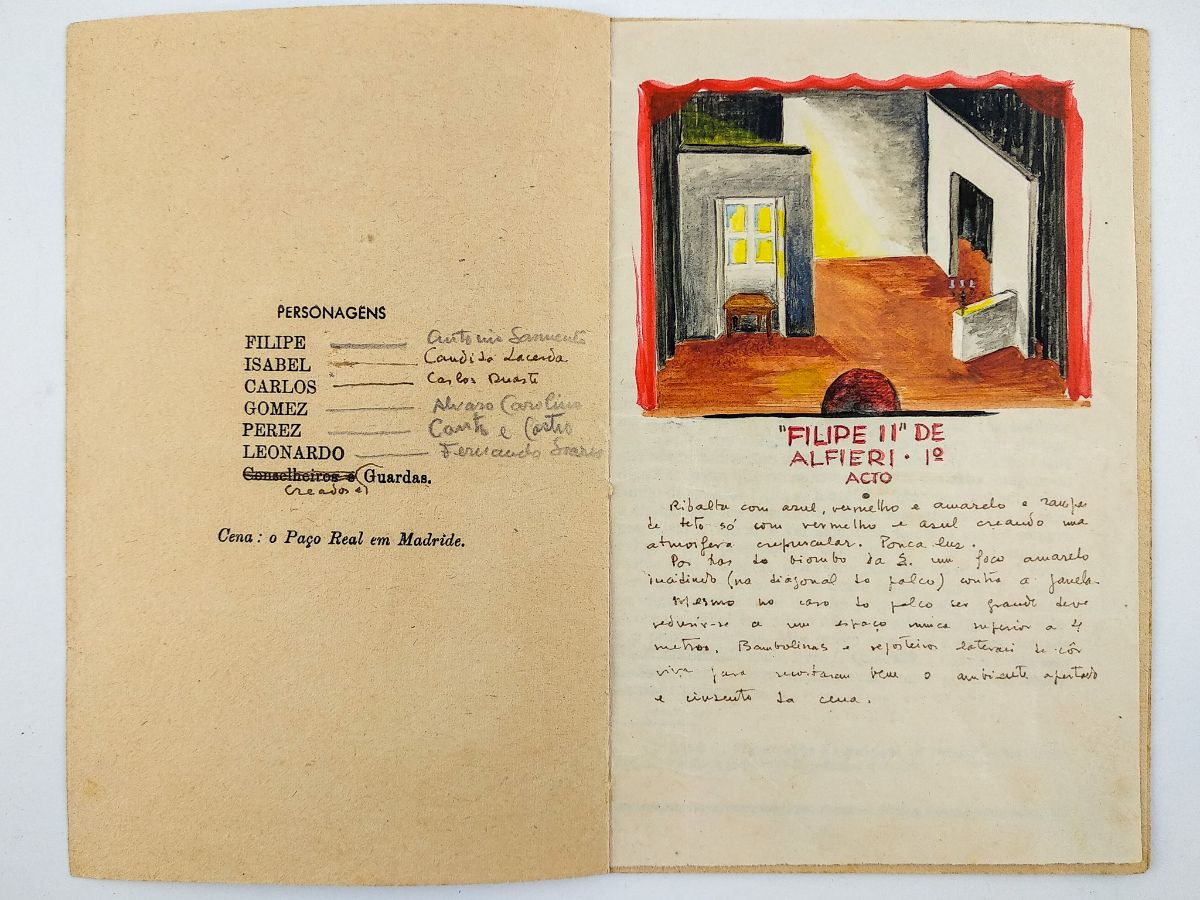 PERSONAGENS
FILIPE Antonio Sarmento
ISABEL Candida Lacerda
CARLOS Carlos Duarte
GOMEZ Alvaro Carolino
PEREZ Canto e Castro
LEONARDO Fernando Soares
Conselheiros e Guardas.
Creados e
Cena: o Paço Real em Madride.
"FILIPE II" DE
ALFIERI · 1º
ACTO
Ribalta com asul, vermelho e amarelo e rampa
de teto só com vermelho e asul creando uma
atmosfera crepuscular. Pouca luz.
Por tras do biombo da E. um foco amarelo
incidindo (na diagonal do palco) contra a janela.
Mesmo no caso do palco ser grande deve
redusir-se a um espaço nunca superior a 4
metros. Bambolinas e reposteiros laterais de côr
viva para recortarem bem o ambiente apertado
e cinzento da cena.